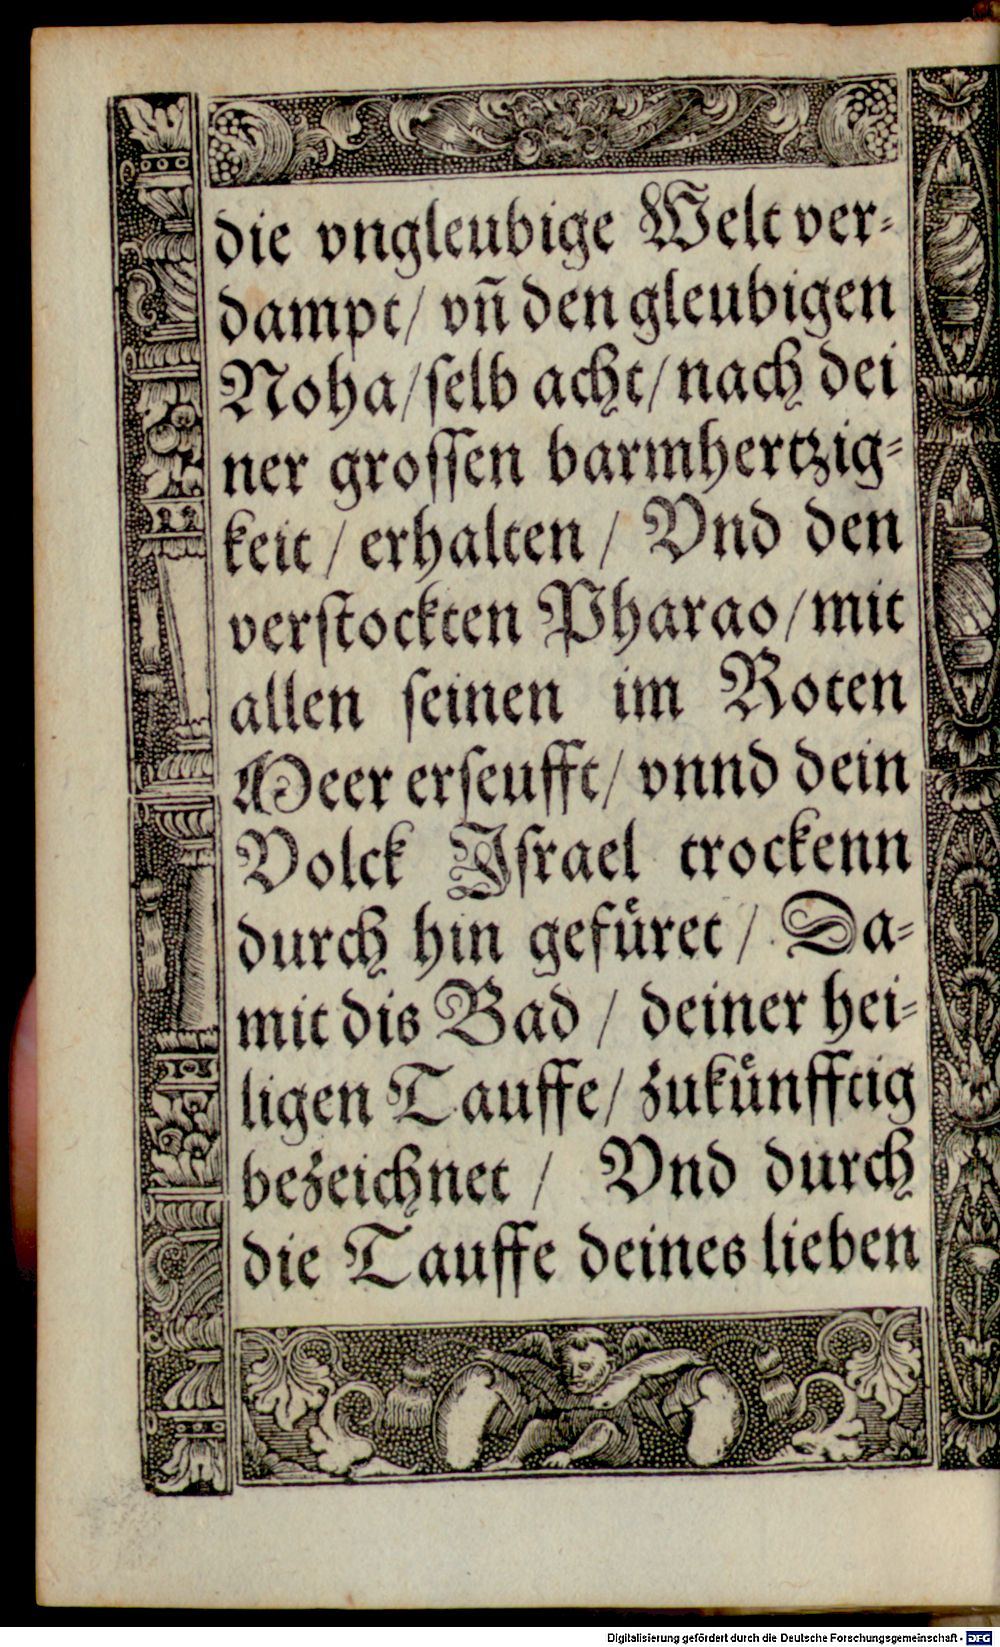 die vngleubige Welt ver⸗
dampt/ vñ den gleubigen
Noha/ſelb acht/nach dei
ner groſſen barmhertzig⸗
keit / erhalten / Vnd den
verſtockten Pharao/mit
allen ſeinen im Roten
Meer erſeufft/ vnnd dein
Volck Iſrael trockenn
durch hin gefüret / Da⸗
mit dis Bad / deiner hei⸗
ligen Tauffe/ zukünfftig
bezeichnet / Vnd durch
die Tauffe deines lieben
Digitalisierung gefördert durch die Deutsche Forschungsgemeinschaft - DFG